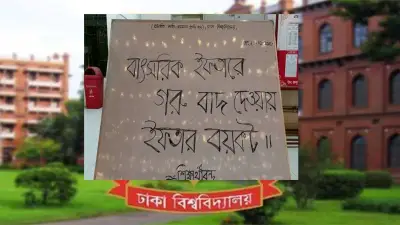 বাৎসরিক ইফতারে
গরু বাদ দেওয়ায়
ইফতার বয়কট॥
-শিক্ষার্থীবৃন্দ
ঢাকা বিশ্ববিদ্যালয়